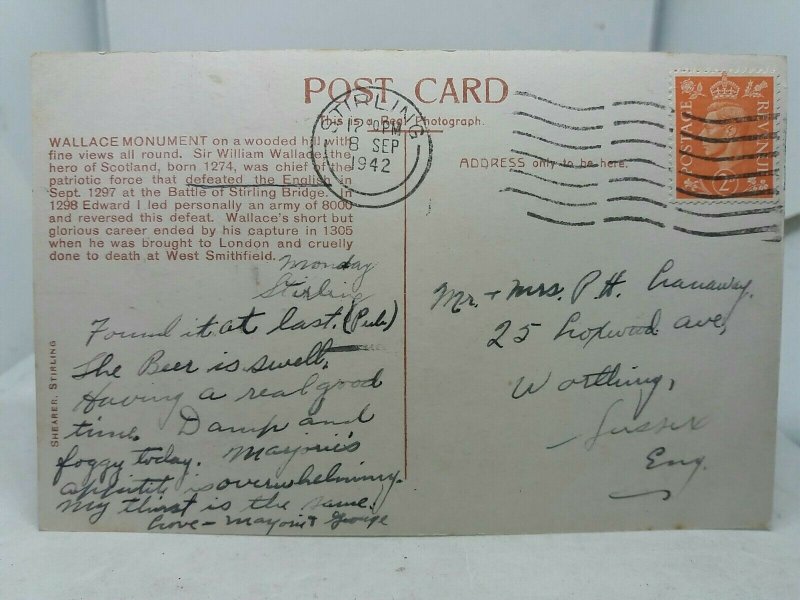 POST CARD
This is a Real Photograph.
STIRLING
12 - PM
8 SEP
1942
POSTAGE
REVENUE
2D
WALLACE MONUMENT on a wooded hill with
fine views all round. Sir William Wallace, the
hero of Scotland, born 1274, was chief of the
patriotic force that defeated the English in
Sept. 1297 at the Battle of Stirling Bridge. In
1298 Edward I led personally an army of 8000
and reversed this defeat. Wallace's short but
glorious career ended by his capture in 1305
when he was brought to London and cruelly
done to death at West Smithfield.
SHEARER, STIRLING
Monday
Stirling
Found it at last. (Pub)
The Beer is swell.
Having a real good
time. Damp and
foggy today. Marjorie's
appitite is overwhelming.
My thirst is the same.
Love - Marjorie & George
ADDRESS only to be here.
Mr. + Mrs. P. H.
25 Ave,
Worthing,
Sussex
Eng.